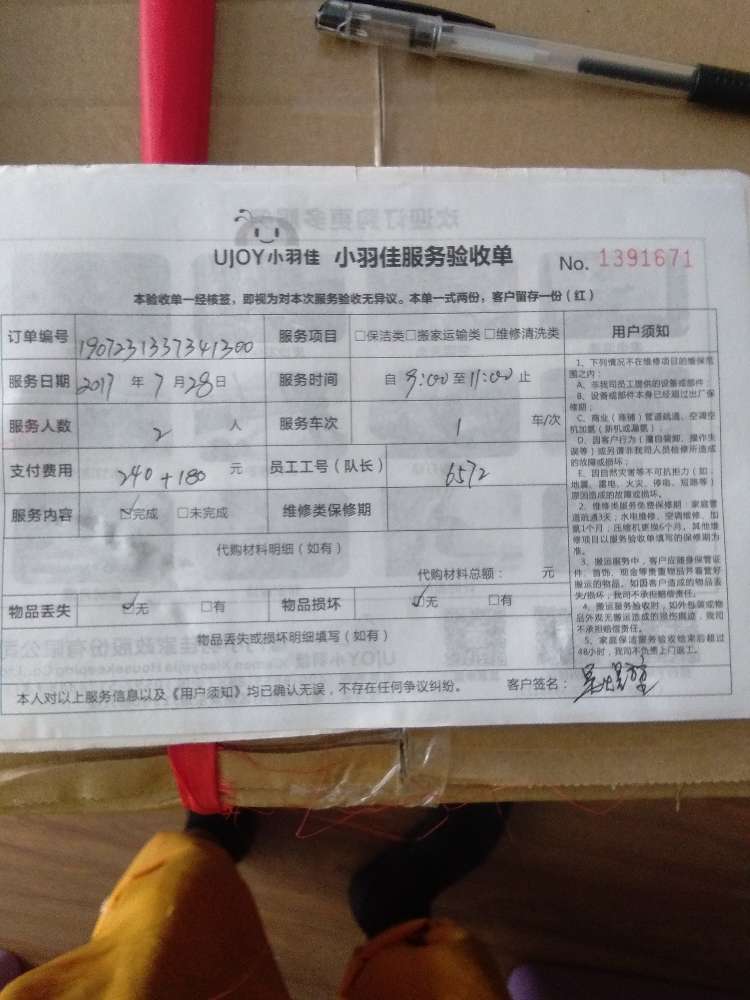 UJOY小羽佳 小羽佳服务验收单 No. 1391671
本验收单一经核签，即视为对本次服务验收无异议。本单一式两份，客户留存一份（红）
订单编号 1907231337341300 服务项目 □保洁类□搬家运输类□维修清洗类 用户须知
服务日期 2017 年 7 月 28 日 服务时间 自 9:00 至 11:00 止
服务人数 2 人 服务车次 1 车/次
支付费用 240+180 元 员工工号（队长） 6572
服务内容 ☑完成 □未完成 维修类保修期
代购材料明细（如有）
代购材料总额： 元
物品丢失 ☑无 □有 物品损坏 ☑无 □有
物品丢失或损坏明细填写（如有）
本人对以上服务信息以及《用户须知》均已确认无误，不存在任何争议纠纷。 客户签名：
1、下列情况不在维修项目的维保范
围之内：
A、非我司员工提供的设备或部件；
B、设备或部件本身已经超过出厂保
修期；
C、商业（商铺）管道疏通、空调空
机加氟（新机或漏氟）；
D、因客户行为（擅自装卸、操作失
误等）或另请非我司人员检修所造成
的故障或损坏；
E、因自然灾害等不可抗拒力（如：
地震、雷电、火灾、停电、短路等）
原因造成的故障或损坏。
2、维修类服务免费保修期：家庭管
道疏通3天，水电维修、空调维修、加
氟1个月，压缩机更换6个月，其他维
修项目以服务验收单填写的保修期为
准。
3、搬运服务中，客户应随身保管证
件、首饰、现金等贵重物品并看管好
搬运的物品。如因客户造成的物品丢
失/损坏，我司不承担赔偿责任。
4、搬运服务验收时，如外包装或物
品外观无搬运造成的损伤痕迹，我司
不承担赔偿责任。
5、家庭保洁服务验收结束后超过
48小时，我司不负责上门返工。